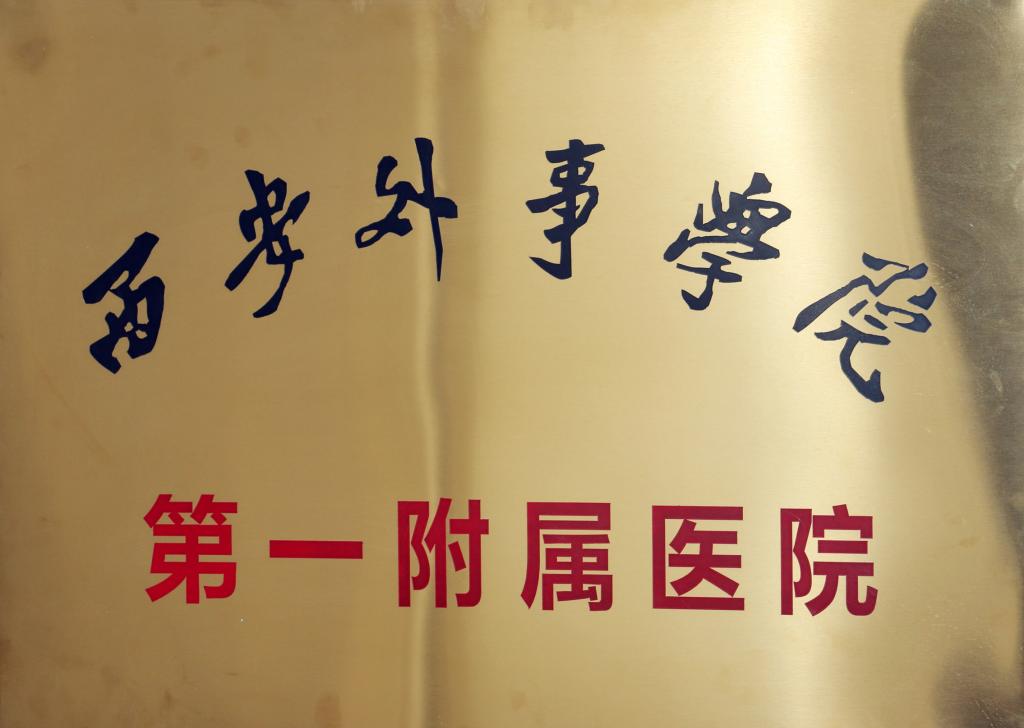 西安外事学院
第一附属医院